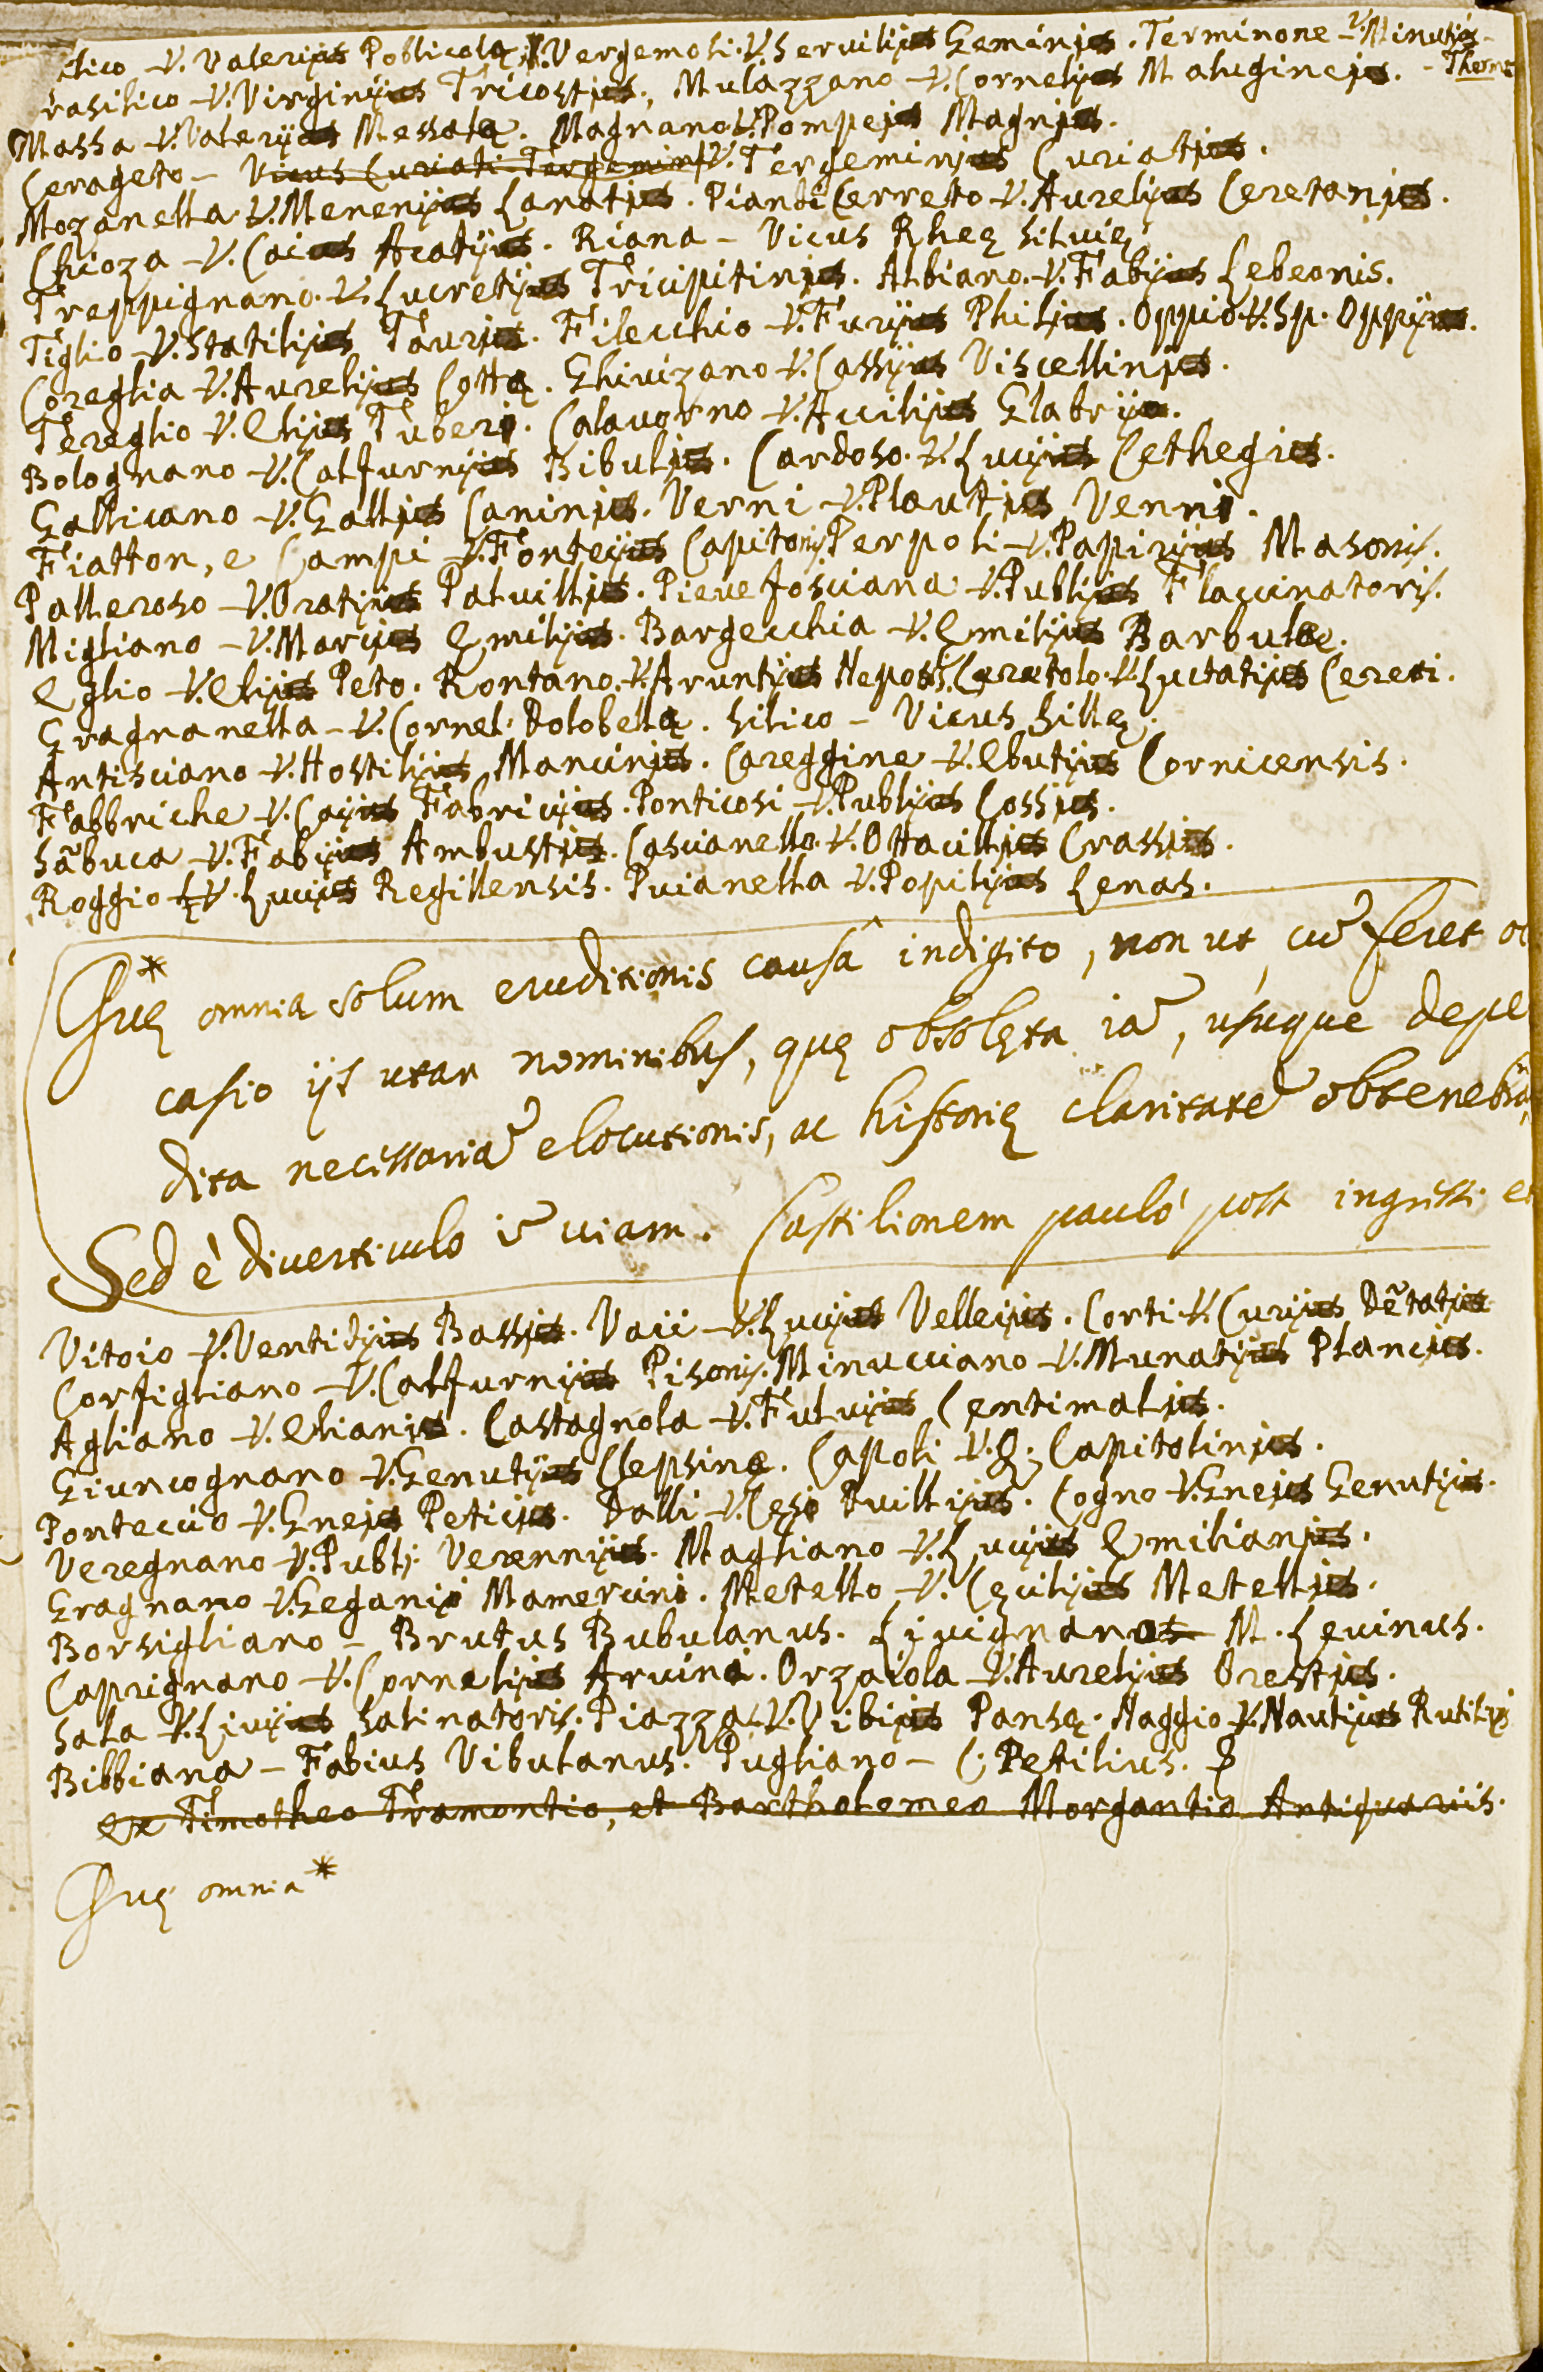 lico - V. Valerij Poblicolę. V. Vergemoli. V. Servilij Gemini. Terminone - V. Minutij -
rasilico - V. Virginij Tricosti. Mulazzano - V. Cornelij Maluginei. - Therm
Massa - V. Valerij Messalę. Magnano V. Pompei Magni.
Cerageto - Vicus Curiati Tergemini V. Tergemini Curiati.
Mozanella. V. Menenij Lanati. Piandi Cerreto - V. Aurelij Ceretani.
Chioza - V. Cai Acatij. Riana - Vicus Rheę Silvię.
Treppignano. V. Lucretij Tricipitini. Albiano. V. Fabij Lebeonis.
Tiglio - V. Statilij Tauri. Filecchio - V. Furij Phili. Oppio V. Sp. Oppij.
Coreglia - V. Aurelij Cottę. Ghivizano - V. Cassij Viscellini.
Tereglio - V. Elij Tuberi. Calavorno - V. Acilij Glabrij.
Bolognano - V. Calfurnij Bibuli. Cardoso. V. Lucij Cethegi.
Gallicano - V. Galli Canini. Verni - V. Plauti Venni.
Fiatton, e Campi - V. Fonteij Capitonis Perpoli - V. Papirij Masonis.
Palleroso - V. Oratij Palvilli. Pieve fosciana - V. Publij Flaccinatoris.
Migliano - V. Marij Emilij. Bargecchia - V. Emilij Barbulae.
Eglio - V. Elij Peto. Rontano. V. Aruntij Nepoti. Ceretolo. V. Luctatij Cereti.
Gragnanella - V. Cornel. Dolobellę. Silico - Vicus Sillę.
Antisciano - V. Hostilij Mancini. Careggine - V. Ebutij Cornicensis.
Fabbriche - V. Caij Fabricij. Ponticosi - V. Publij Cossi.
Sãbuca - V. Fabij Ambusti. Cascianello. V. Ottacilli Crassi.
Roggio V. Lucij Regillensis. Pvianella V. Popilij Lenas.
Quę* omnia solum eruditionis causâ indigito, non ut, cũ feret oc
casio ijs utar nominibus, quę obsolęta iã, usuque depe
dita necessariã elocutionis, ac historię claritatẽ obtenebrãt
Sed è diverticulo ĩ viam. Castilionem paulò post ingressi e
Vitoio V. Ventidij Bassi. Vaii - V. Lucij Velleij. Corti V. Curij Dẽtati
Corfigliano - V. Calfurnij Pisonis. Minucciano - V. Munatij Planci.
Agliano - V. Eliani. Castagnola - V. Fulvij Centimali.
Giuncognano - V. Genutij Clepsinę. Capoli V. Q. Capitolini.
Pontecio - V. Gnei Petici. Dalli - V. Cęsi Duillij. Cogno - V. Gnei Genutij.
Veregnano - V. Publj Verennij. Magliano - V. Lucij Emiliani.
Gragnano - V. Geganij Mamercini. Metello - V. Cęcilij Metelli.
Borsigliano - Brutus Bubulanus. Livignano - M. Levinus.
Caprignano - V. Cornelij Arvini. Orzaiola - V. Aurelij Oresti.
Sala V. Livij Salinatoris. Piazza V. Vibij Pansę. Naggio V. Nautij Rutilij
Bibbiana - Fabius Vibulanus. Pugliano - C. Petilius.
Ex Timotheo Tramontio, et Bartholomeo Morgantio Antiquariis.
Quę omnia*